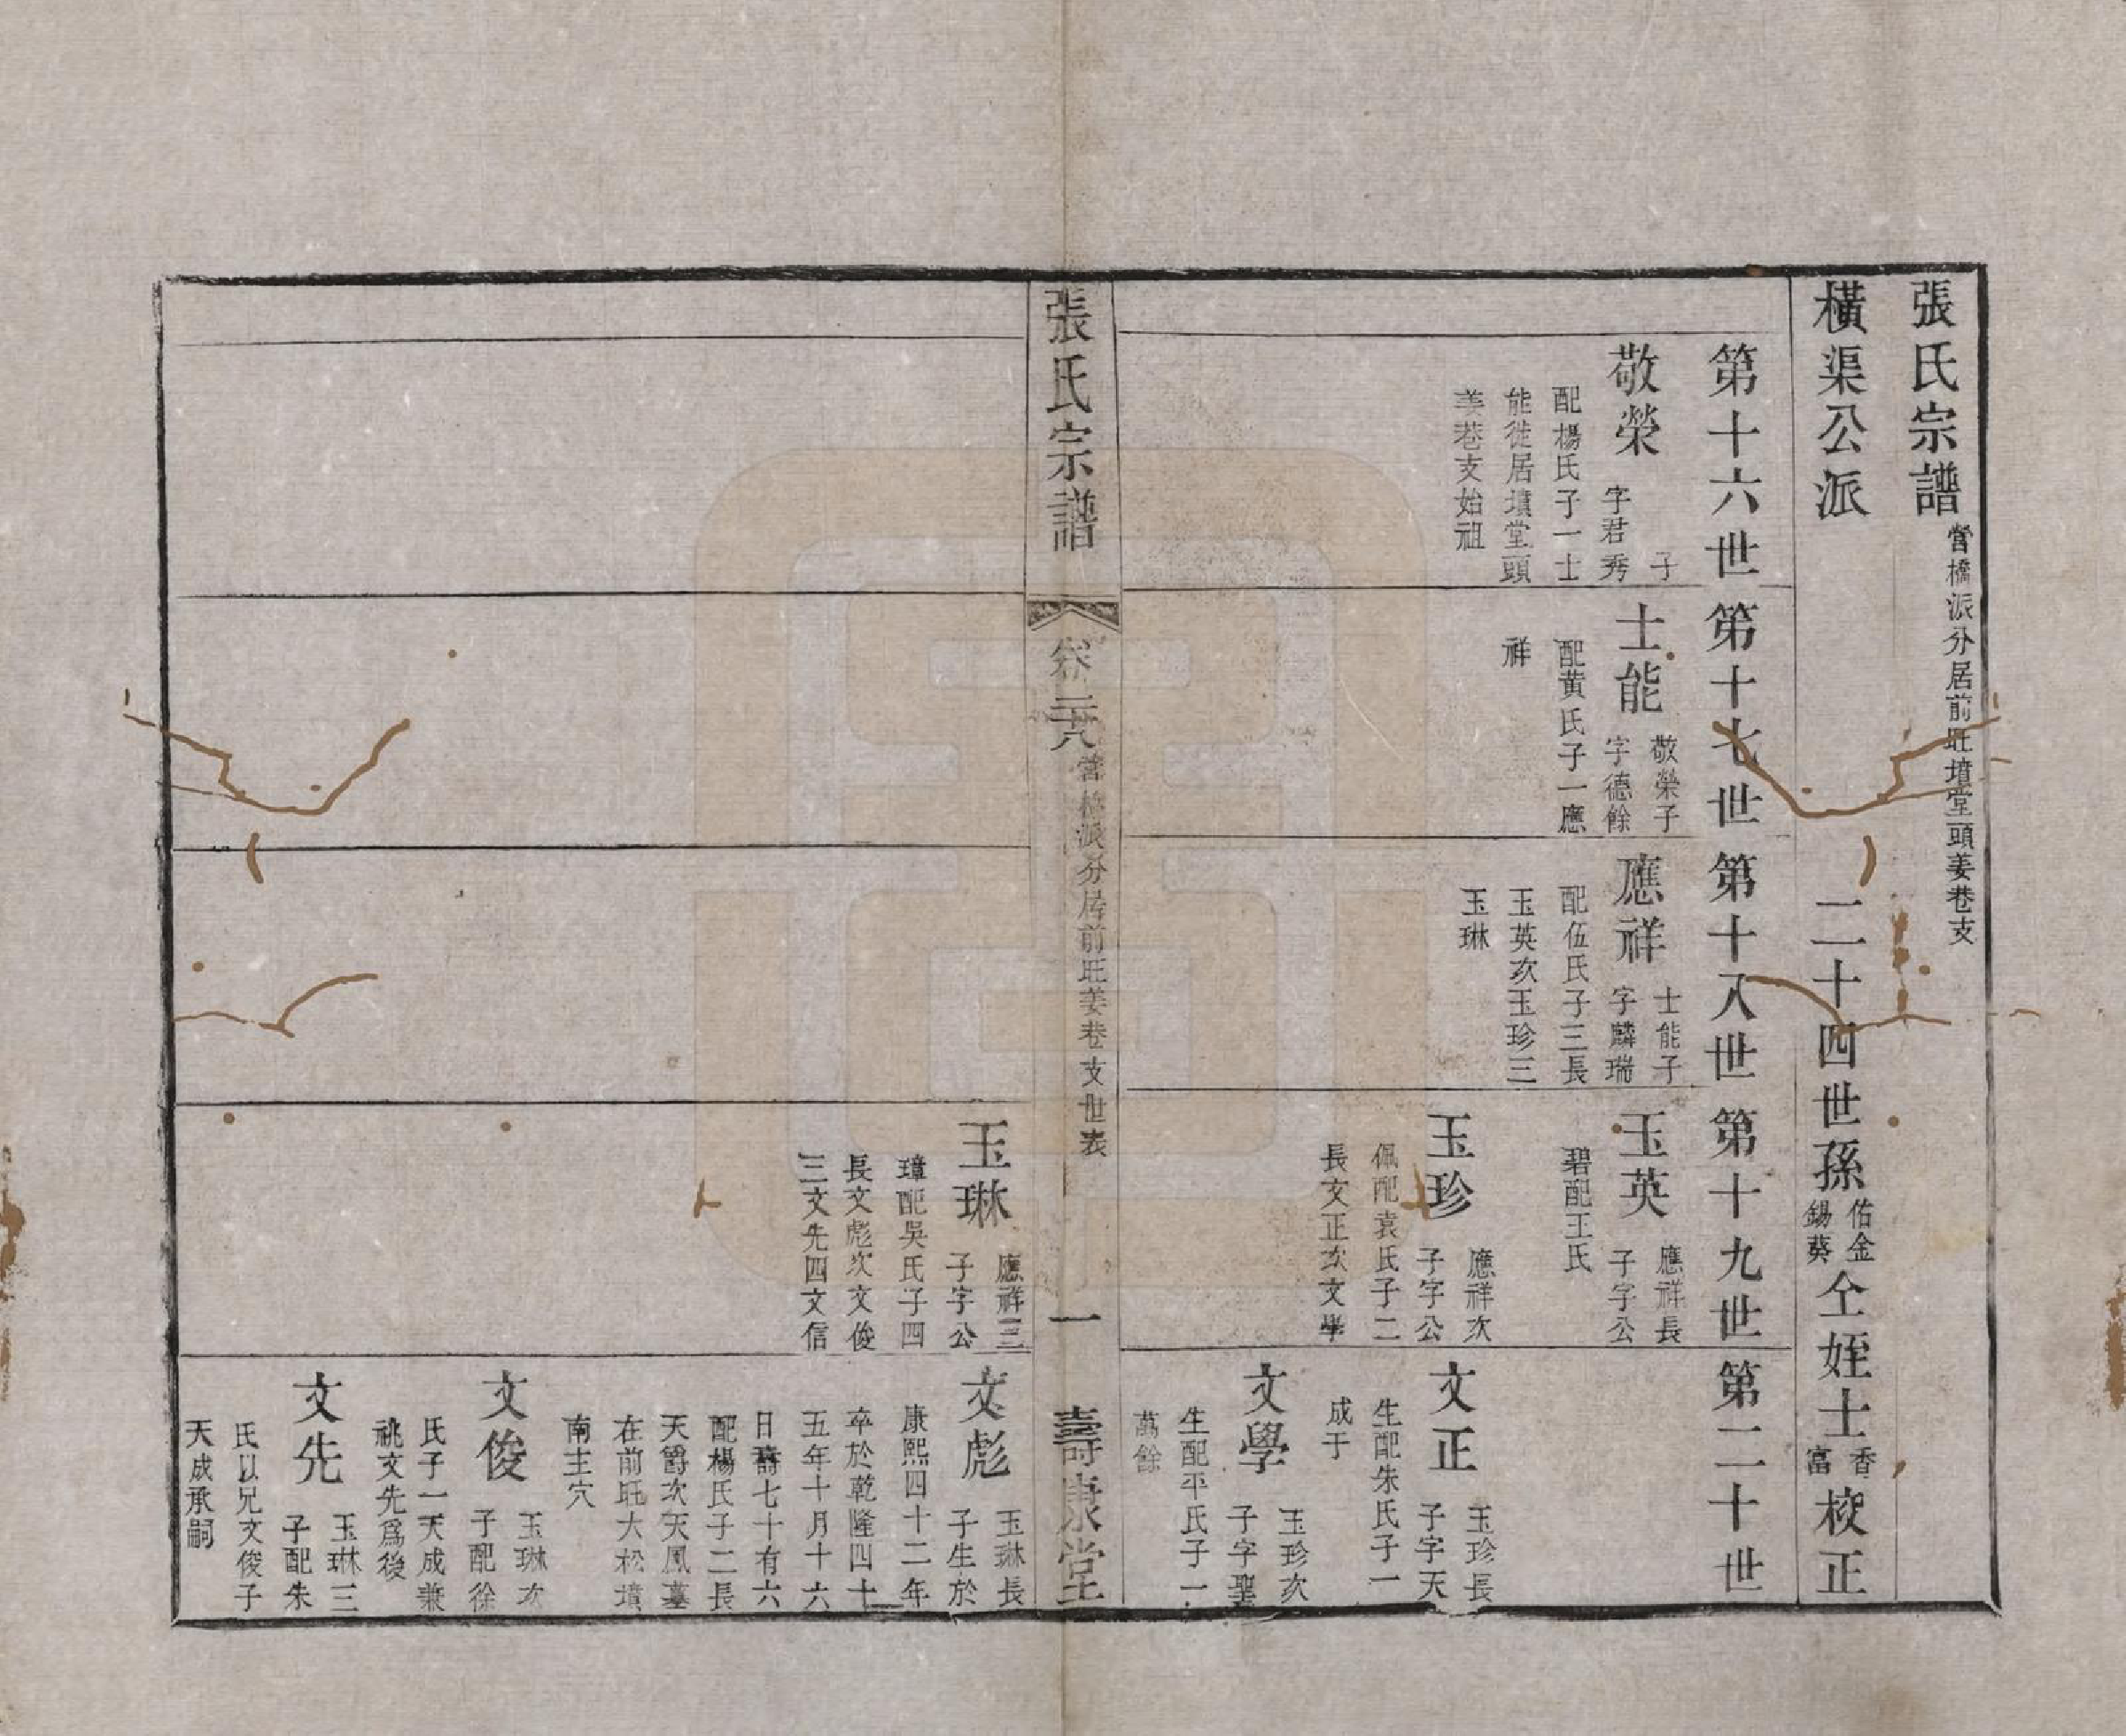 張氏宗譜 當橋派分居前旺墳堂頭姜巷支
橫渠公派 二十四世孫佑金錫葵仝姪士香富校正
第十六世
敬榮 子
字君秀
配楊氏子一士
能徙居墳堂頭
姜巷支始祖
第十七世
士能 敬榮子
字德餘
配黄氏子一應
祥
第十八世
應祥 士能子
字麟瑞
配伍氏子三長
玉英次玉珍三
玉琳
第十九世
玉英 應祥長
子字公
碧配王氏
玉珍 應祥次
子字公
佩配袁氏子二
長文正次文學
第二十世
文正 玉珍長
子字天
生配朱氏子一
成于
文學 玉珍次
子字聖
生配平氏子一
萬餘
張氏宗譜 卷二六 當橋派分居前旺姜巷支世表 一 壽康堂
玉琳 應祥三
子字公
璋配吳氏子四
長文彪次文俊
三文先四文信
文彪 玉琳長
子生於
康熙四十二年
卒於乾隆四十
五年十月十六
日壽七十有六
配楊氏子二長
天爵次天鳳墓
在前旺大松墳
南主穴
文俊 玉琳次
子配徐
氏子一天成兼
祧文先爲後
文先 玉琳三
子配朱
氏以兄文俊子
天成承嗣